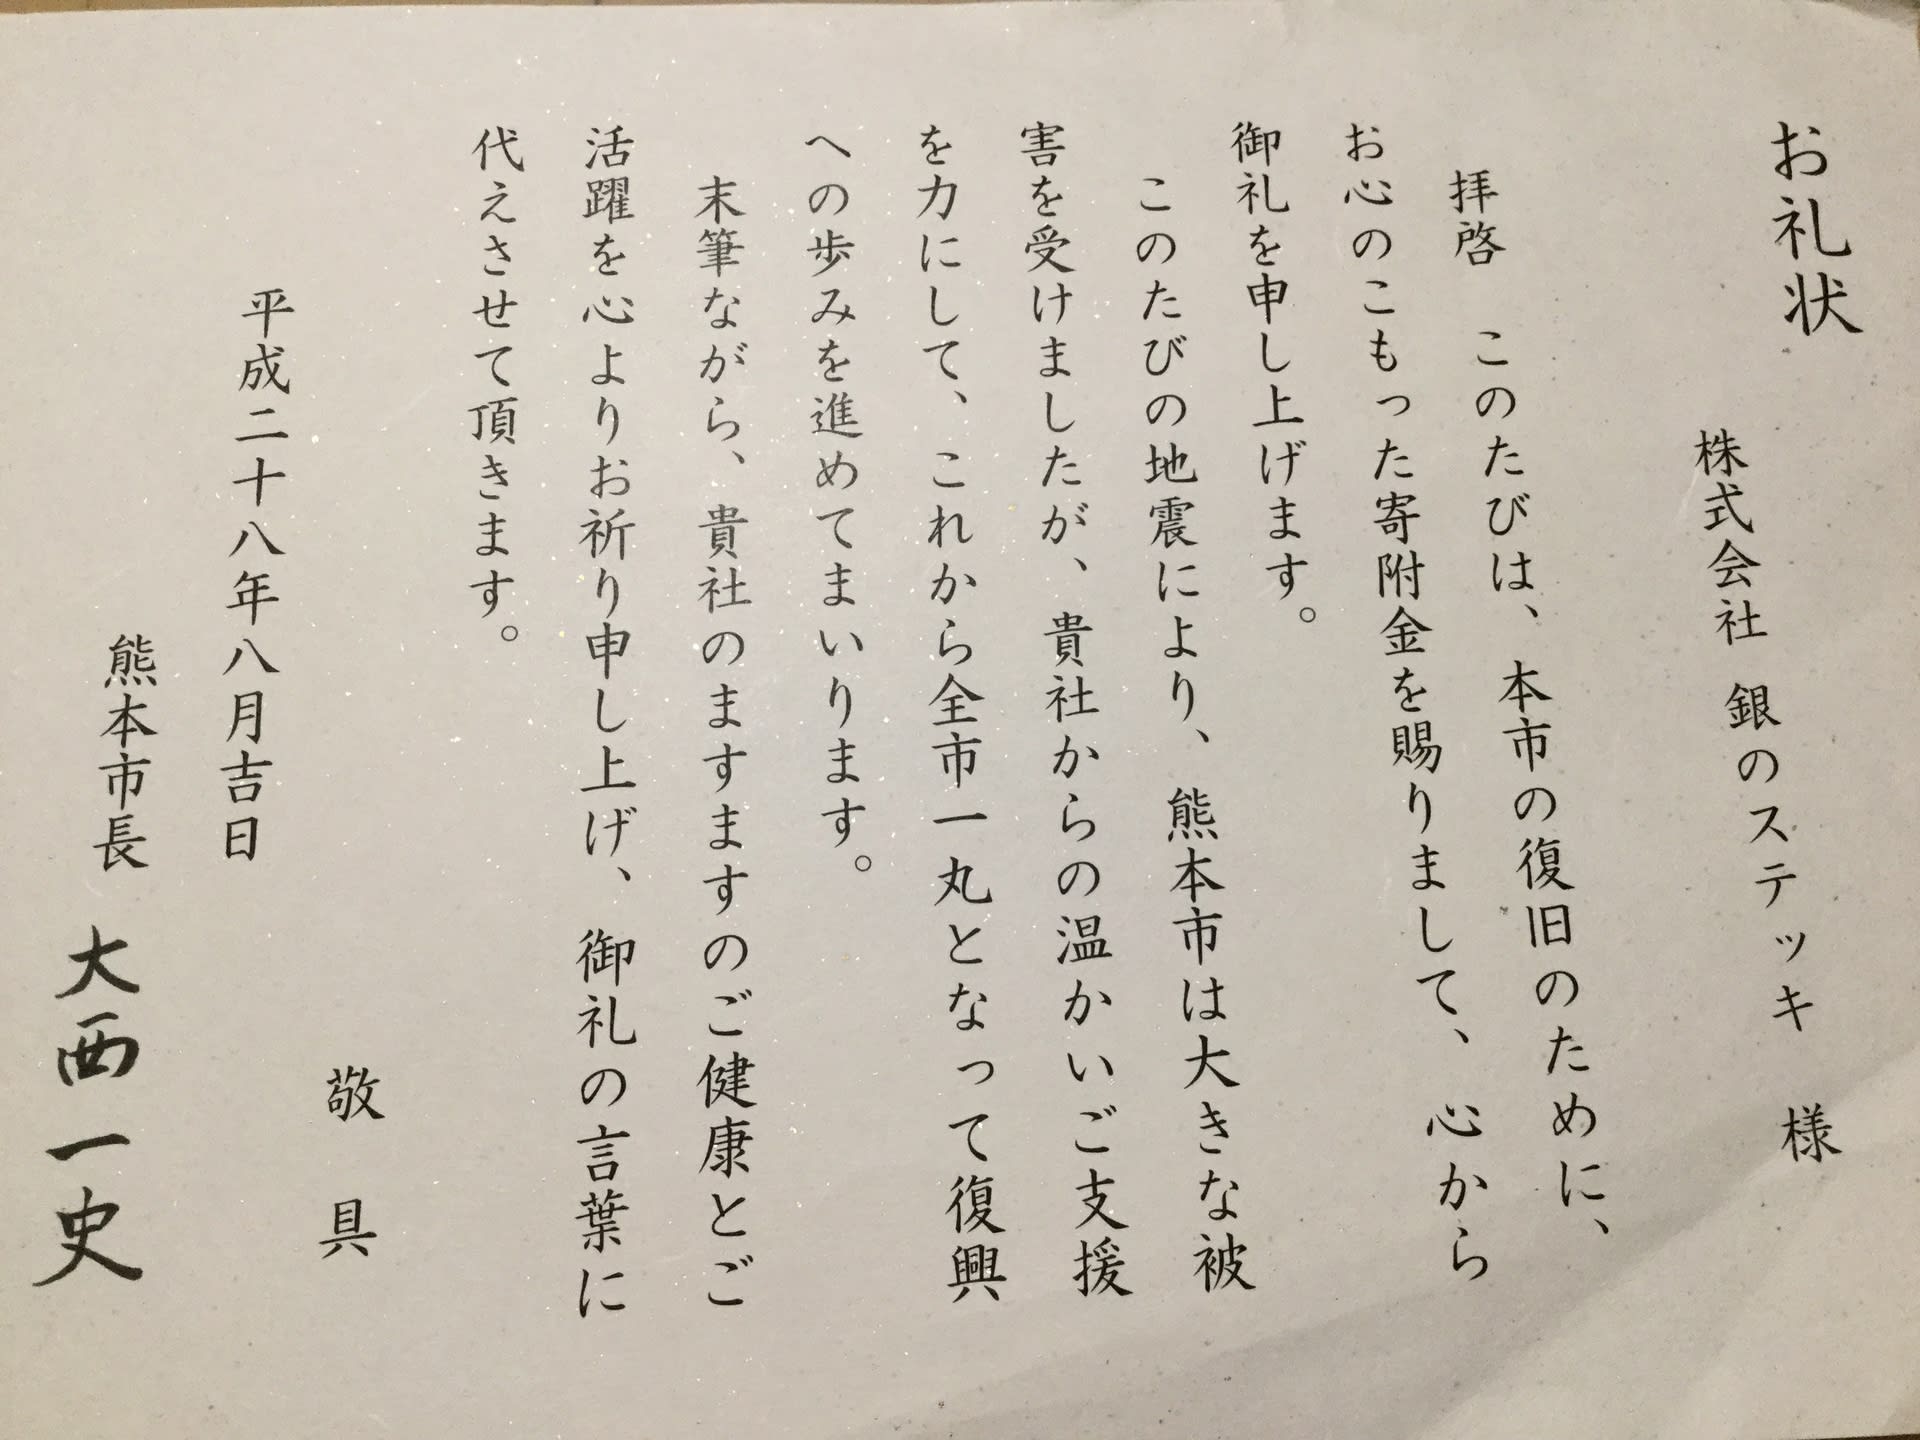 お礼状
株式会社 銀のステッキ 様
拝啓 このたびは、本市の復旧のために、
お心のこもった寄附金を賜りまして、心から
御礼を申し上げます。
このたびの地震により、熊本市は大きな被
害を受けましたが、貴社からの温かいご支援
を力にして、これから全市一丸となって復興
への歩みを進めてまいります。
末筆ながら、貴社のますますのご健康とご
活躍を心よりお祈り申し上げ、御礼の言葉に
代えさせて頂きます。
敬具
平成二十八年八月吉日
熊本市長 大西一史